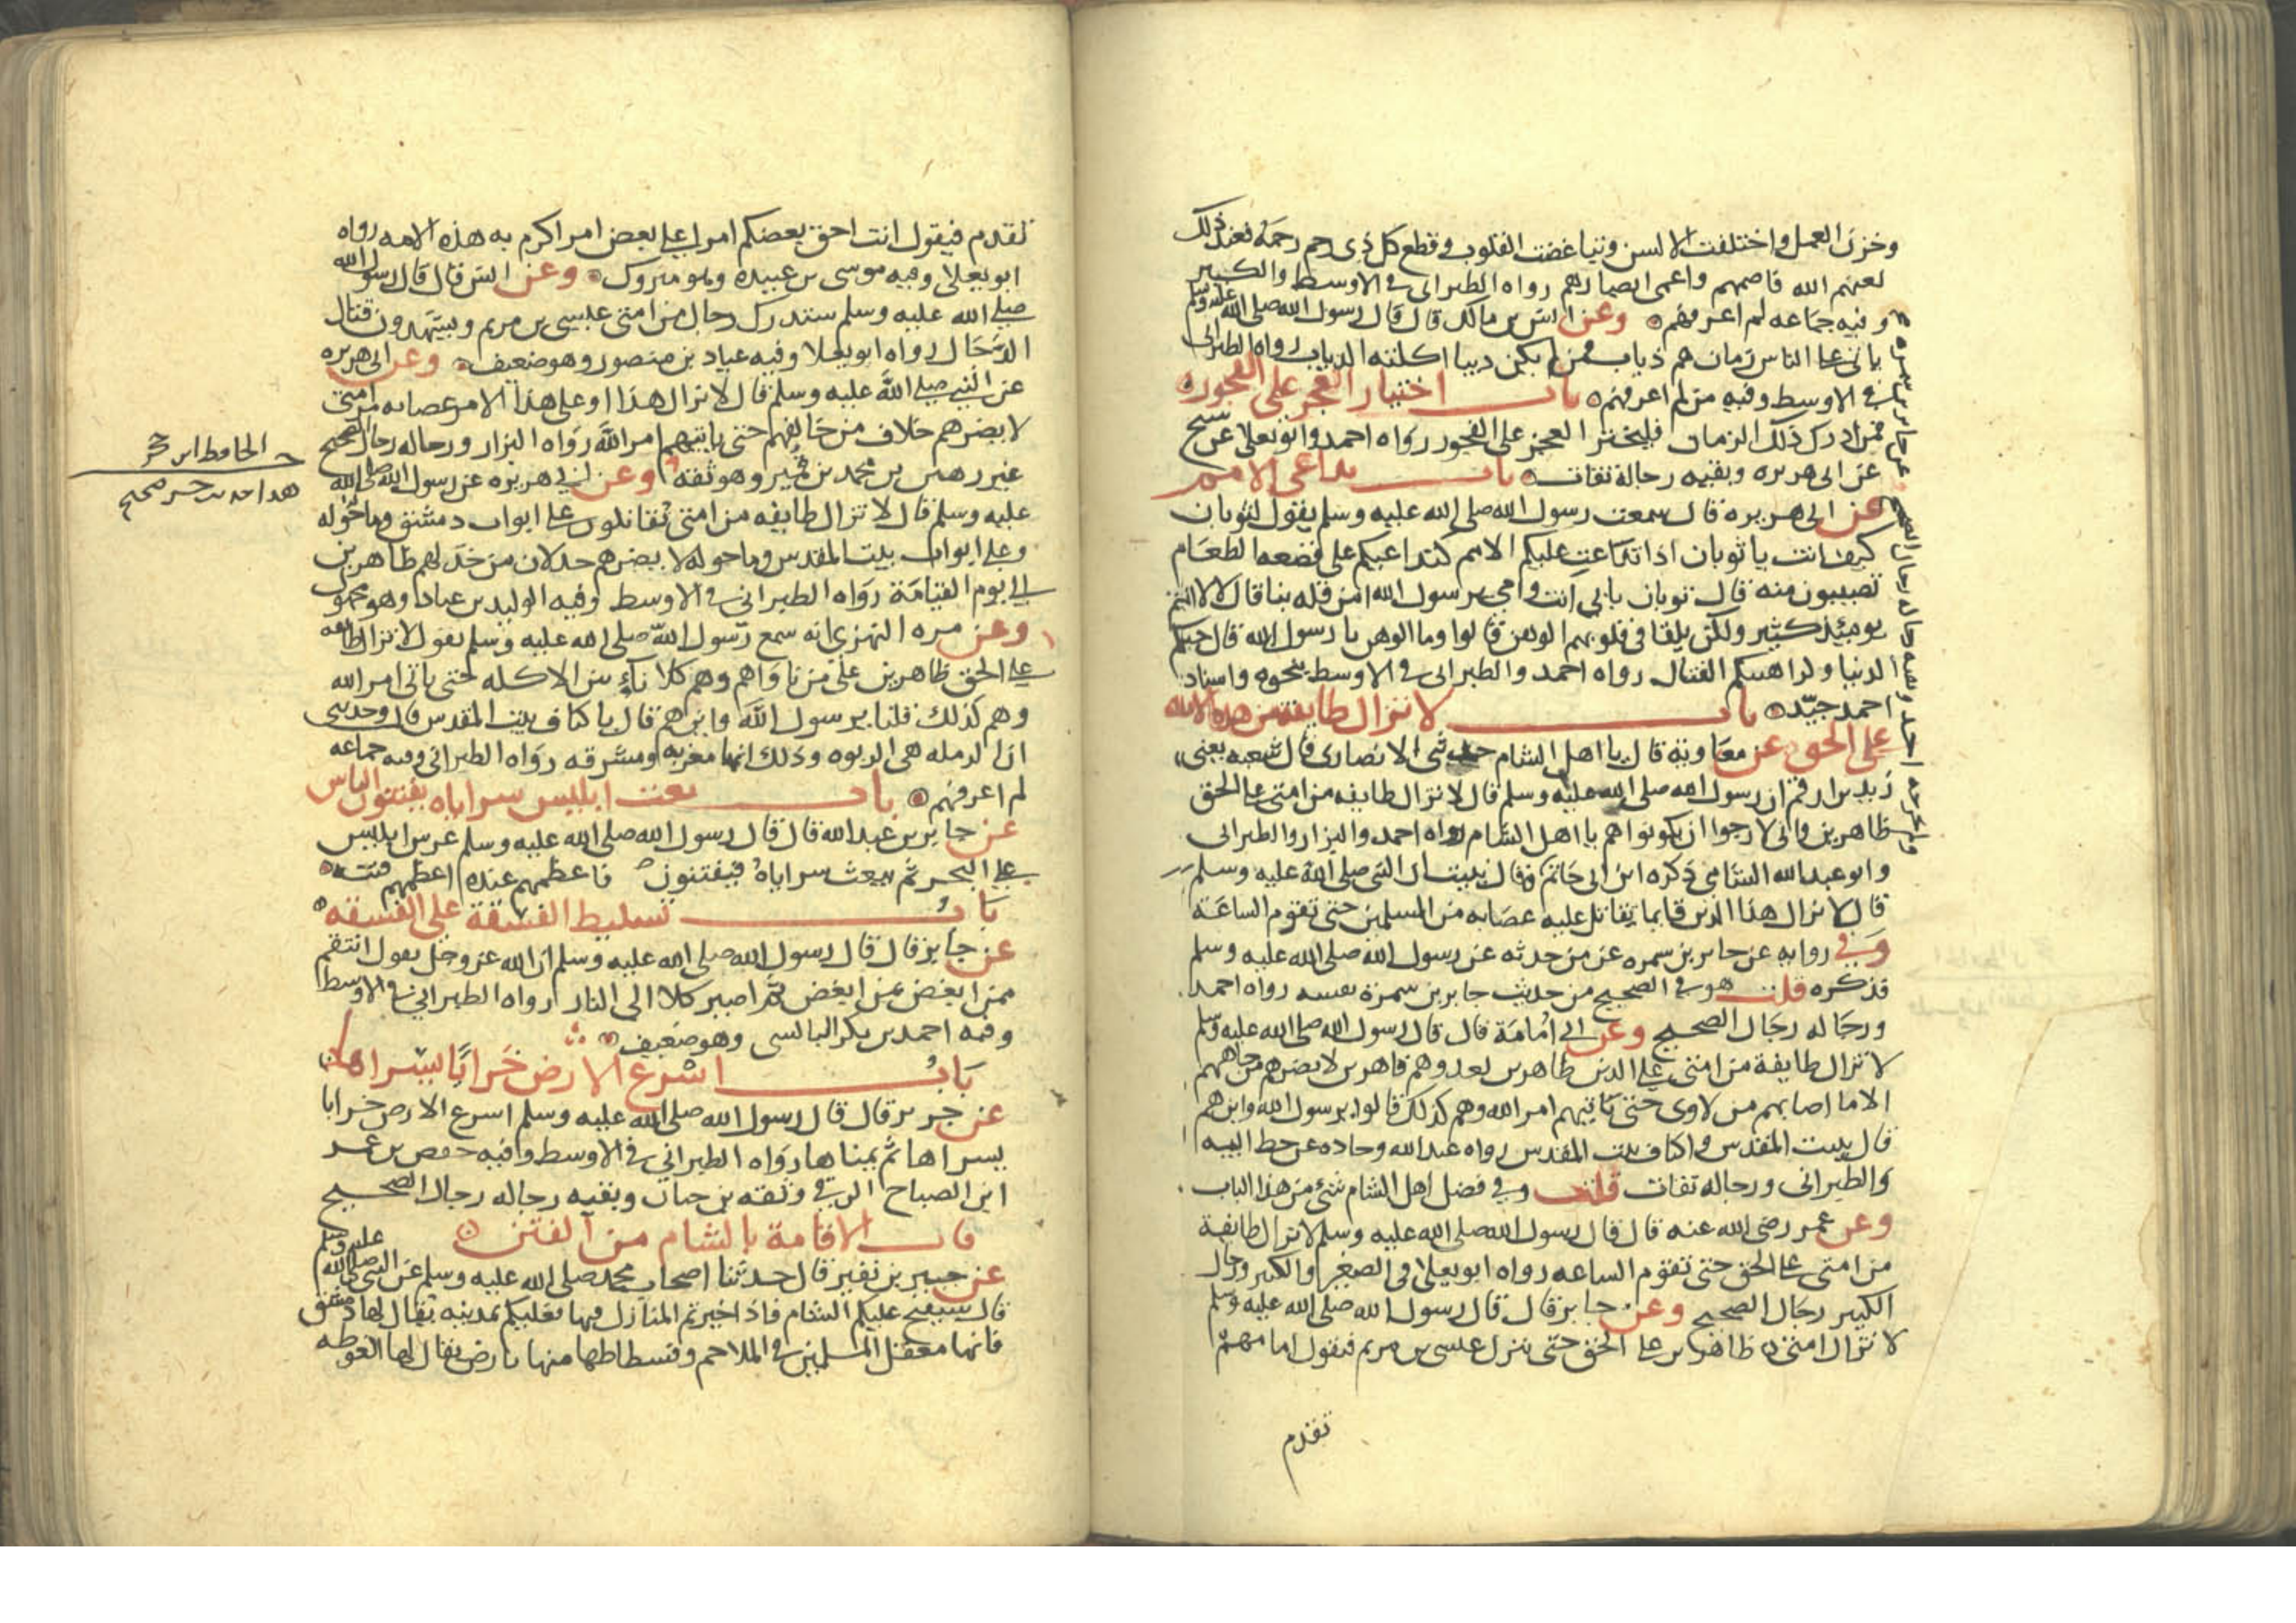 وخزن العمل واختلفت الالسن وتباغضت القلوب وقطع كل ذي رحم رحمه فعند ذلك
لعنهم الله فاصمهم واعمى ابصارهم رواه الطبراني في الاوسط والكبير
وفيه جماعه لم اعرفهم وعن انس بن مالك قال قال رسول الله صلى الله عليه وسلم
ياتي على الناس زمان هم ذياب فمن لم يكن ديبا اكلته الدياب رواه الطبراني
في الاوسط وفيه من لم اعرفهم باب اختيار العجز على الفجور
فمن ادرك ذلك الزمان فليختر العجز على الفجور رواه احمد وابو يعلا عن شيخ
عن ابي هريره وبقيه رجاله ثقات باب تداعي الامم
عن ابي هريره قال سمعت رسول الله صلى الله عليه وسلم يقول لثوبان
كيف انت يا ثوبان اذا تداعت عليكم الامم كتداعيكم على قصعه الطعام
تصيبون منه قال ثوبان بابي انت وامي يرسول الله امن قله بنا قال لا انتم
يوميذ كثير ولكن يلقا في قلوبهم الوهن قالوا وما الوهن يا رسول الله قال حبكم
الدنيا وكراهيتكم القتال رواه احمد والطبراني في الاوسط بنحوه واسناد
احمد جيد باب لا تزال طايفة من هذه الامه
على الحق عن معاوية قال يا اهل الشام حدثني الانصاري قال شعبه يعني
زيد بن ارقم ان رسول الله صلى الله عليه وسلم قال لا تزال طايفه من امتي على الحق
ظاهرين واني لارجوا ان يكونوا هم يا اهل الشام رواه احمد والبزار والطبراني
وابو عبد الله الشامي ذكره ابن ابي حاتم وقال نبيت ان النبي صلى الله عليه وسلم
قال لا يزال هذا الدين قايما يقاتل عليه عصابه من المسلمين حتى تقوم الساعة
وفي روايه عن جابر بن سمره عن من حدثه عن رسول الله صلى الله عليه وسلم
فذكره قلت هو في الصحيح من حديث جابر بن سمرة نفسه رواه احمد
ورجاله رجال الصحيح وعن ابي امامة قال قال رسول الله صلى الله عليه وسلم
لا تزال طايفة من امتي على الدين ظاهرين لعدوهم قاهرين لا يضرهم من جابههم
الا ما اصابهم من لاوى حتى ياتيهم امر الله وهم كذلك قالوا يرسول الله واين هم
قال ببيت المقدس واكناف بيت المقدس رواه عبد الله وجاده عن خط ابيه
والطبراني ورجاله ثقات قلت وفي فضل اهل الشام شيء من هذا الباب
وعن عمر رضي الله عنه قال قال رسول الله صلى الله عليه وسلم لا تزال طائفة
من امتي على الحق حتى تقوم الساعه رواه ابو يعلا وفي الصغير والكبير ورجال
الكبير رجال الصحيح وعن جابر قال قال رسول الله صلى الله عليه وسلم
لا تزال امتي ظاهرين على الحق حتى ينزل عيسى بن مريم فيقول امامهم
تقدم
تقدم فيقول انت احق بعضكم امرا على بعض امر اكرم به هذه الامه رواه
ابو يعلا وفيه موسى بن عبيده وهو متروك وعن انس قال قال رسول الله
صلى الله عليه وسلم ستدرك رجال من امتي عيسى بن مريم ويشهدون قتال
الدجال رواه ابو يعلا وفيه عباد بن منصور وهو ضعيف وعن ابي هريره
عن النبي صلى الله عليه وسلم قال لا تزال هذا او على هذا الامر عصابه من امتي
لا يضرهم خلاف من خالفهم حتى ياتيهم امر الله رواه البزار ورجاله رجال الصحيح
غير زهير بن محمد بن قمير وهو ثقه وعن ابي هريره عن رسول الله صلى الله
عليه وسلم قال لا تزال طايفه من امتي يقاتلون على ابواب دمشق وما حوله
وعلى ابواب بيت المقدس وما حوله لا يضرهم خذلان من خذلهم ظاهرين
الى يوم القيامة رواه الطبراني في الاوسط وفيه الوليد بن عباد وهو مجهول
وعن مره البهزي انه سمع رسول الله صلى الله عليه وسلم يقول لا تزال طايفه
على الحق ظاهرين على من ناواهم وهم كالاناء بين الاكله حتى ياتي امر الله
وهم كذلك قلنا يرسول الله واين هم قال باكناف بيت المقدس قال وحدثني
ان الرمله هي الربوه وذلك انها مغربه ومشرقه رواه الطبراني وفيه جماعه
لم اعرفهم باب بعث ابليس سراياه يفتنون الناس
عن جابر بن عبد الله قال قال رسول الله صلى الله عليه وسلم عرش ابليس
على البحر ثم يبعث سراياه فيفتنون فاعظمهم عنده اعظمهم فتنه
باب تسليط الفسقة على الفسقه
عن جابر قال قال رسول الله صلى الله عليه وسلم ان الله عز وجل يقول انتقم
ممن ابغض بمن ابغض ثم اصير كلا الى النار رواه الطبراني في الاوسط
وفيه احمد بن بكر البالسي وهو ضعيف
باب اسرع الارض خرابا يسراها
عن جرير قال قال رسول الله صلى الله عليه وسلم اسرع الارض خرابا
يسراها ثم يمناها رواه الطبراني في الاوسط وفيه حفص بن عمر
ابن الصباح الرقي وثقه بن حبان وبقيه رجاله رجال الصحيح
باب الاقامة بالشام من الفتن
عن جبير بن نفير قال حدثنا اصحاب محمد صلى الله عليه وسلم عن النبي صلى الله عليه وسلم
قال سيفتح عليكم الشام فاذا خيرتم المنازل فيها فعليكم بمدينه يقال لها دمشق
فانها معقل المسلمين في الملاحم وفسطاطها منها بارض يقال لها الغوطه
الحافظ ابن حجر
هذا حديث صحيح